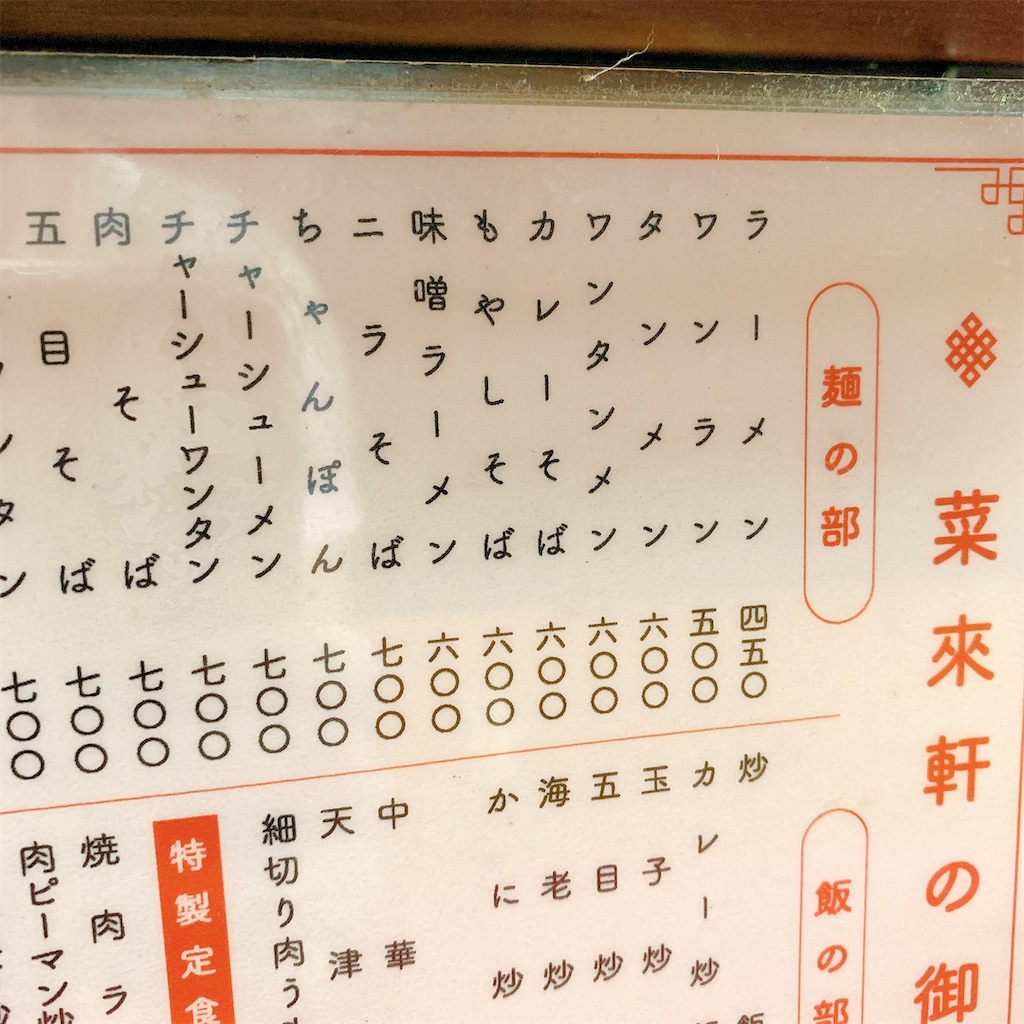 菜來軒の御
麺の部
ラーメン 四五〇
ワンラン 五〇〇
タンメン 六〇〇
ワンタンメン 六〇〇
カレーそば 六〇〇
もやしそば 六〇〇
味噌ラーメン 六〇〇
ニラそば 七〇〇
ちゃんぽん 七〇〇
チャーシューメン 七〇〇
チャーシューワンタン 七〇〇
肉そば 七〇〇
五目そば 七〇〇
タン 七〇〇
飯の部
炒飯
カレー炒
玉子炒
五目炒
海老炒
かに炒
中華
天津
細切り肉う
特製定食
焼肉ラ
肉ピーマン炒